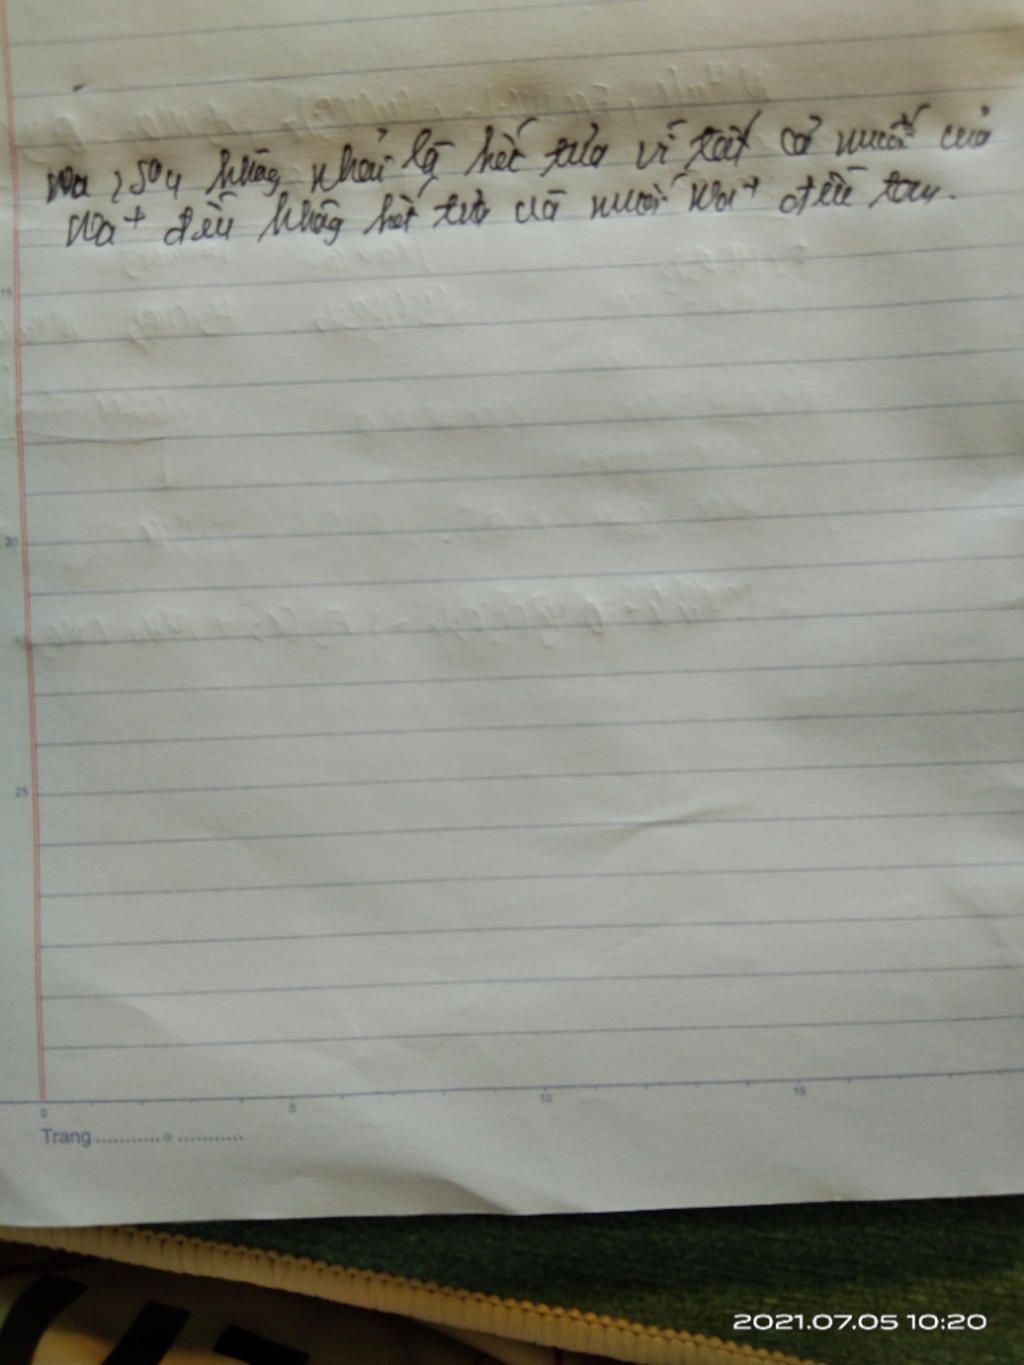 Na2SO4 không phải là kết tủa vì tất cả muối của
Na+ đều không kết tủa và muối Na+ đều tan.
15
20
25
0 5 10 15
Trang
2021.07.05 10:20